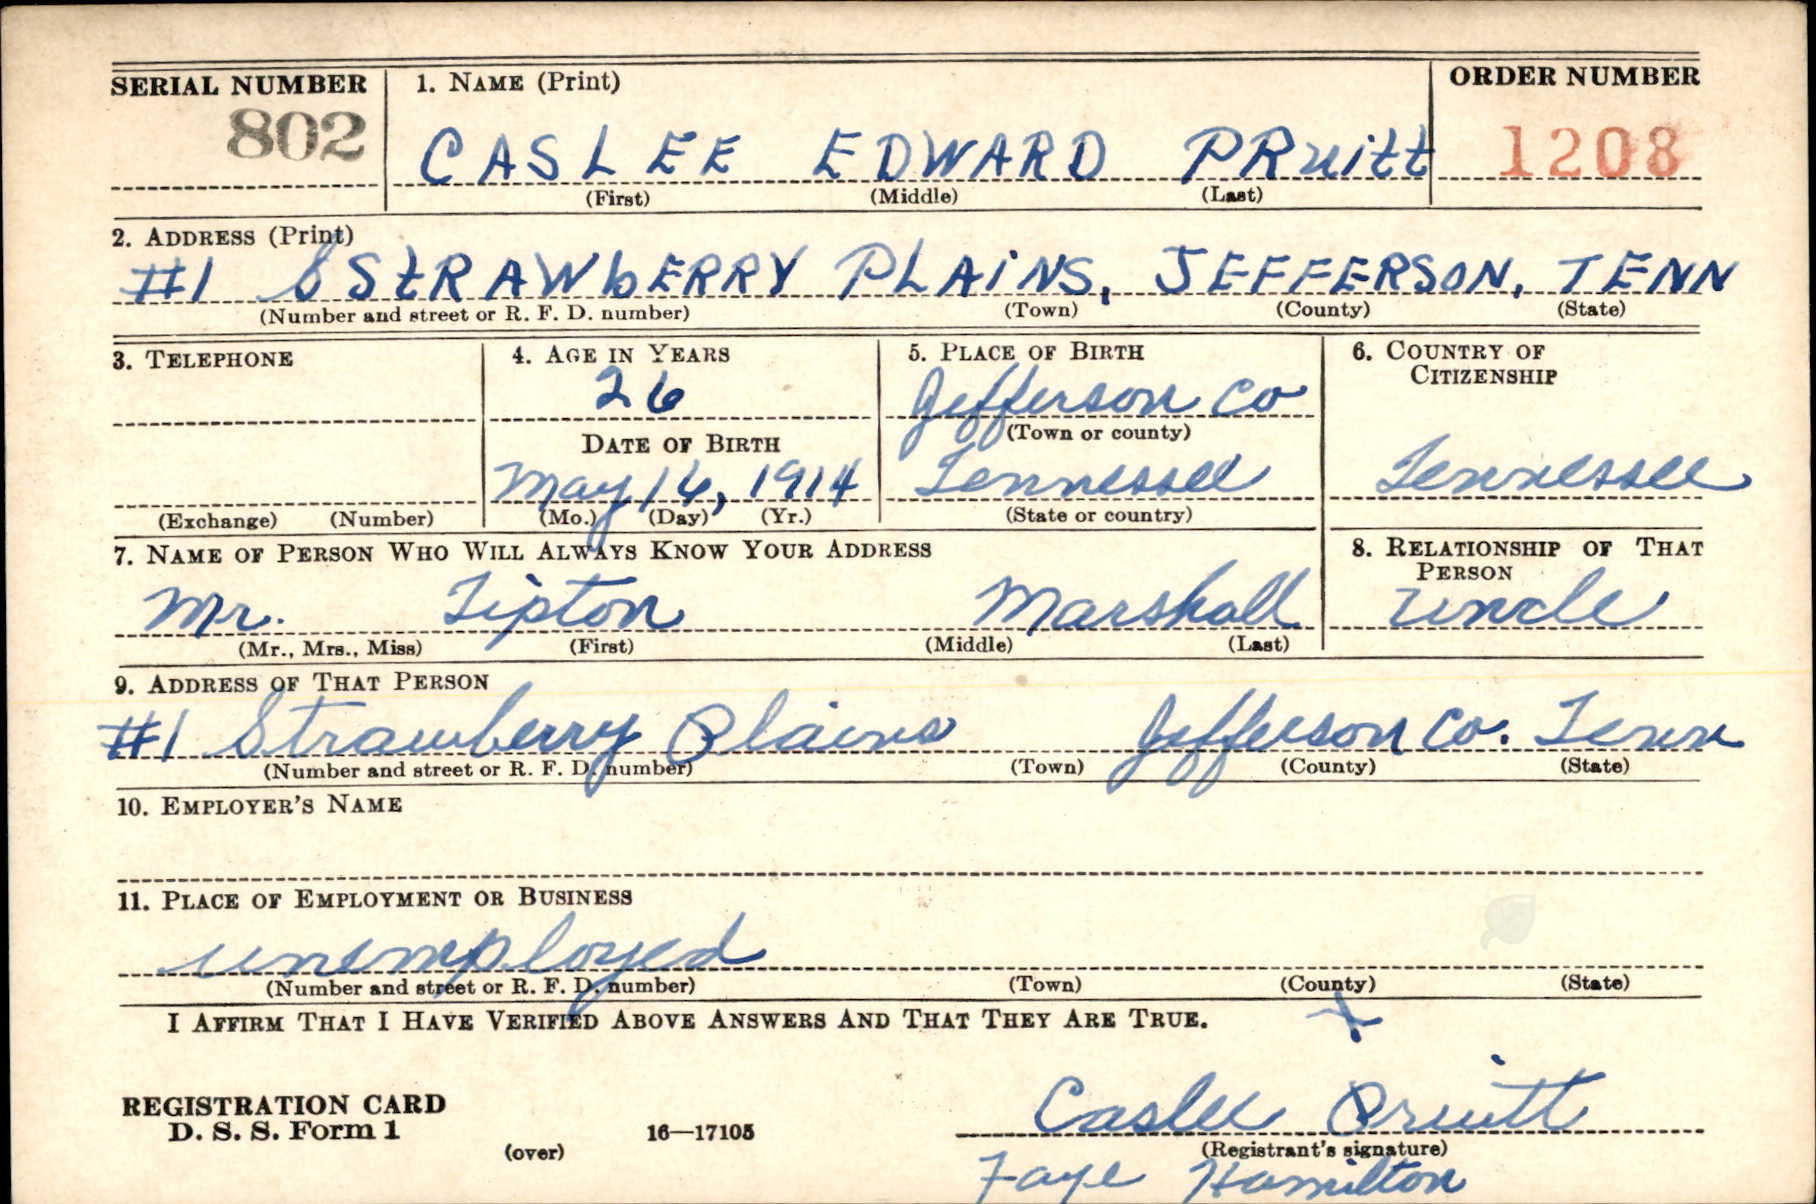 SERIAL NUMBER 1. NAME (Print) ORDER NUMBER
802 CASLEE EDWARD PRuitt 1208
(First) (Middle) (Last)
2. ADDRESS (Print)
#1 S StRAWbERRY PLAiNS, JEFFERSON, TENN
(Number and street or R. F. D. number) (Town) (County) (State)
3. TELEPHONE 4. AGE IN YEARS 5. PLACE OF BIRTH 6. COUNTRY OF CITIZENSHIP
26 Jefferson Co
DATE OF BIRTH (Town or county)
May 16, 1914 Tennessee Tennessee
(Exchange) (Number) (Mo.) (Day) (Yr.) (State or country)
7. NAME OF PERSON WHO WILL ALWAYS KNOW YOUR ADDRESS 8. RELATIONSHIP OF THAT PERSON
Mr. Tipton Marshall uncle
(Mr., Mrs., Miss) (First) (Middle) (Last)
9. ADDRESS OF THAT PERSON
#1 Strawberry Plains Jefferson Co. Tenn
(Number and street or R. F. D. number) (Town) (County) (State)
10. EMPLOYER'S NAME
11. PLACE OF EMPLOYMENT OR BUSINESS
unemployed
(Number and street or R. F. D. number) (Town) (County) (State)
I AFFIRM THAT I HAVE VERIFIED ABOVE ANSWERS AND THAT THEY ARE TRUE.
X
REGISTRATION CARD
D. S. S. Form 1
(over) 16—17105
Caslee Pruitt
(Registrant's signature)
Faye Hamilton